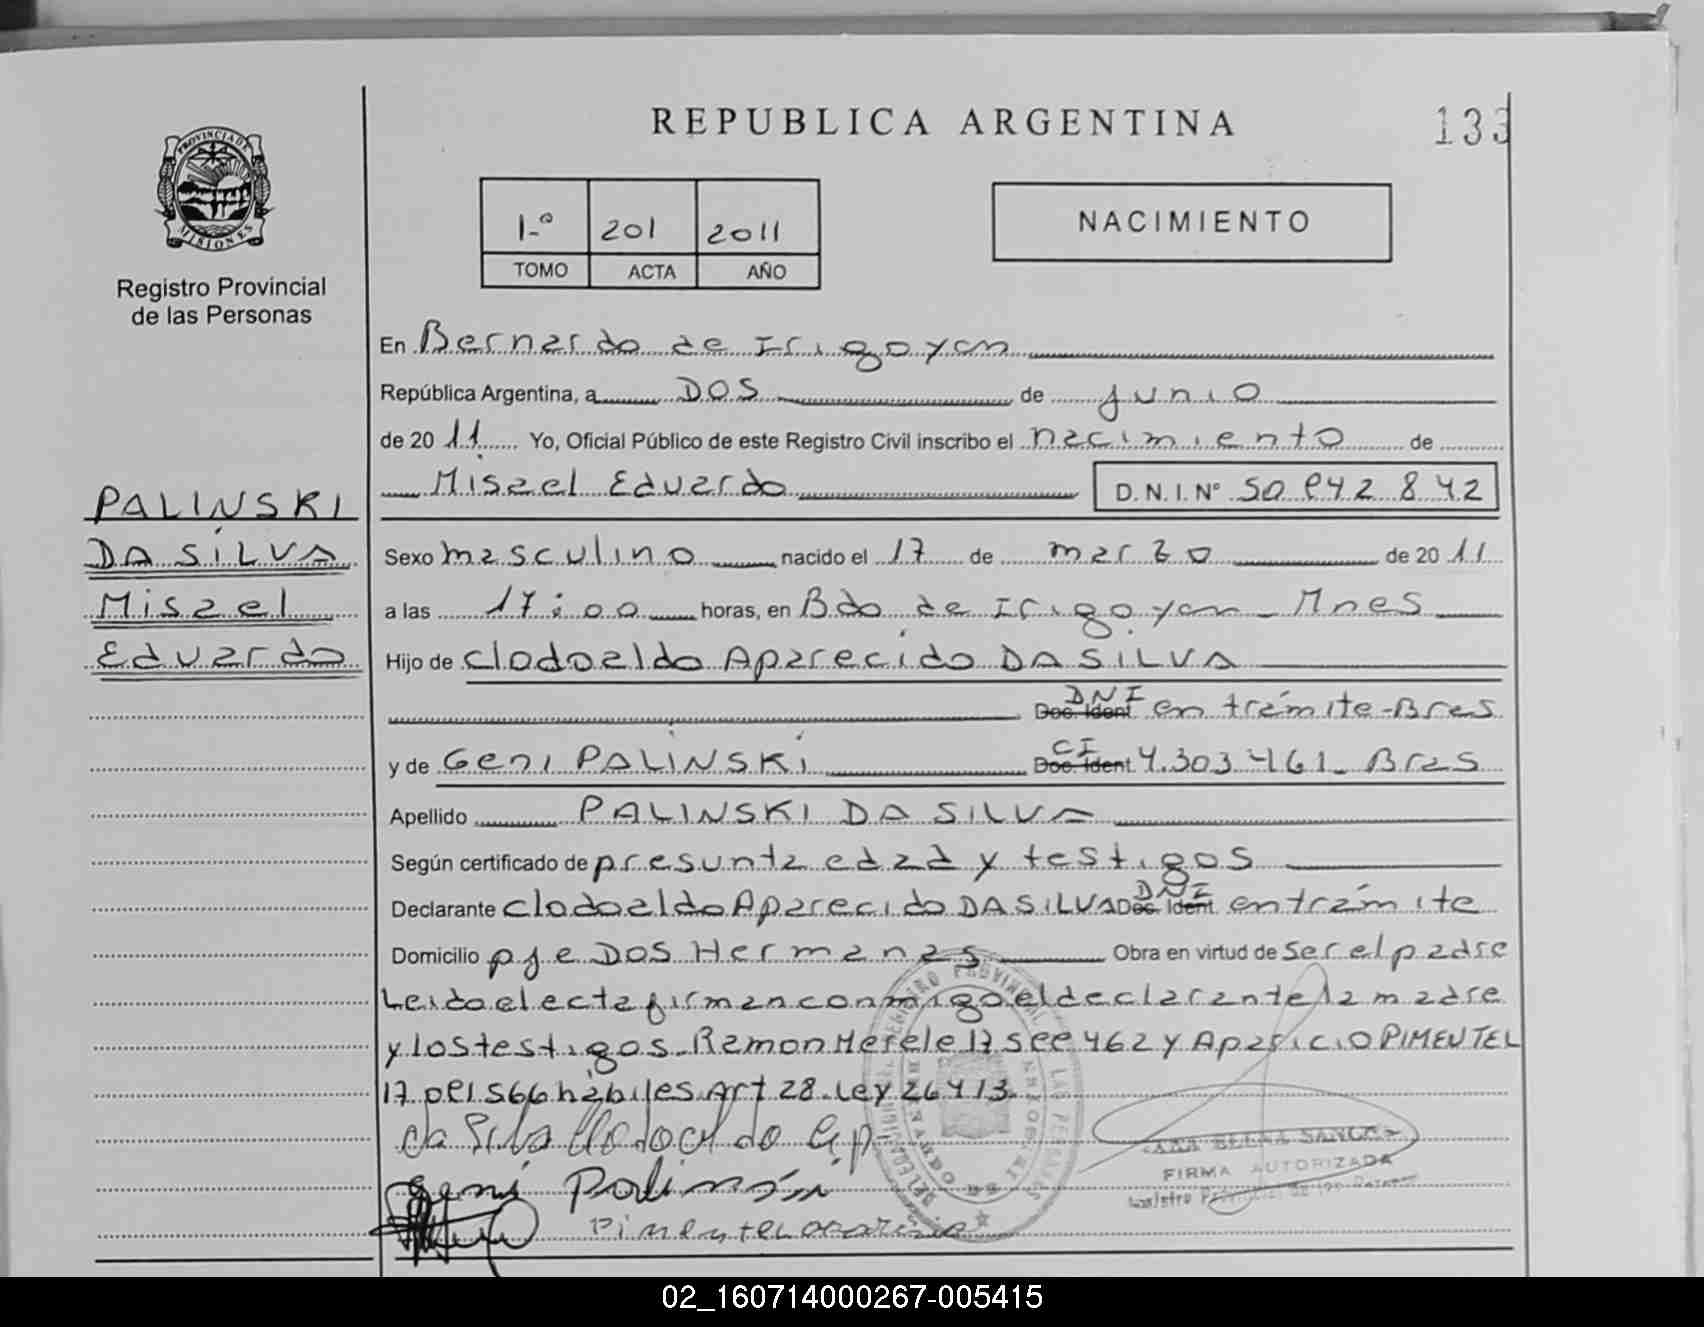 REPUBLICA ARGENTINA
133
PROVINCIA DE MISIONES
Registro Provincial
de las Personas
1-º 201 2011
TOMO ACTA AÑO
NACIMIENTO
En Bernardo de Irigoyen
República Argentina, a DOS de junio
de 2011 Yo, Oficial Público de este Registro Civil inscribo el nacimiento de
Misael Eduardo D.N.I.Nº 50 942 842
PALINSKI
DA SILVA
Misael
Eduardo
Sexo masculino nacido el 17 de marzo de 2011
a las 17:00 horas, en Bdo de Irigoyen - Mnes
Hijo de Clodoaldo Aparecido DA SILVA
DNI
Doc. Ident en trámite-Bras
y de Geni PALINSKI CI Doc. Ident 4.303461- Bras
Apellido PALINSKI DA SILVA
Según certificado de presunta edad y testigos
Declarante Clodoaldo Aparecido DA SILVA DNI Doc. Ident en trámite
Domicilio pje DOS Hermanas Obra en virtud de ser el padre
Leida el acta firman conmigo el declarante la madre
y los testigos - Ramon 462 y Aparicio PIMENTEL
17 566 hábiles Art 28 - Ley 26413.
da Silva Clodoaldo Ap
Geni Palinski
Pimentel
FIRMA AUTORIZADA
02_160714000267-005415